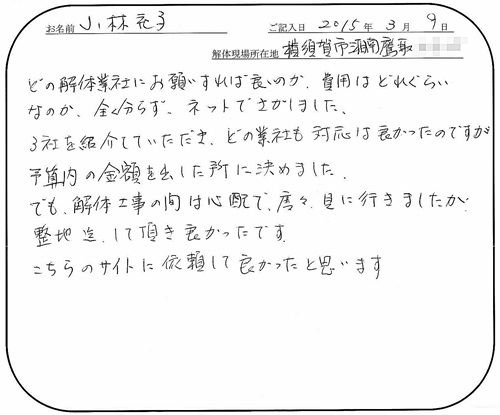 お名前 小林花子 ご記入日 2015年 3月 9日
解体現場所在地 横須賀市湘南鷹取
どの解体業社にお願いすれば良いのか、費用はどれぐらい
なのか、全く分らず、ネットでさがしました、
3社を紹介していただき、どの業社も対応は良かったのですが
予算内の金額を出した所に決めました。
でも、解体工事の間は心配で、度々、見に行きましたが、
整地迄、して頂き良かったです。
こちらのサイトに依頼して良かったと思います